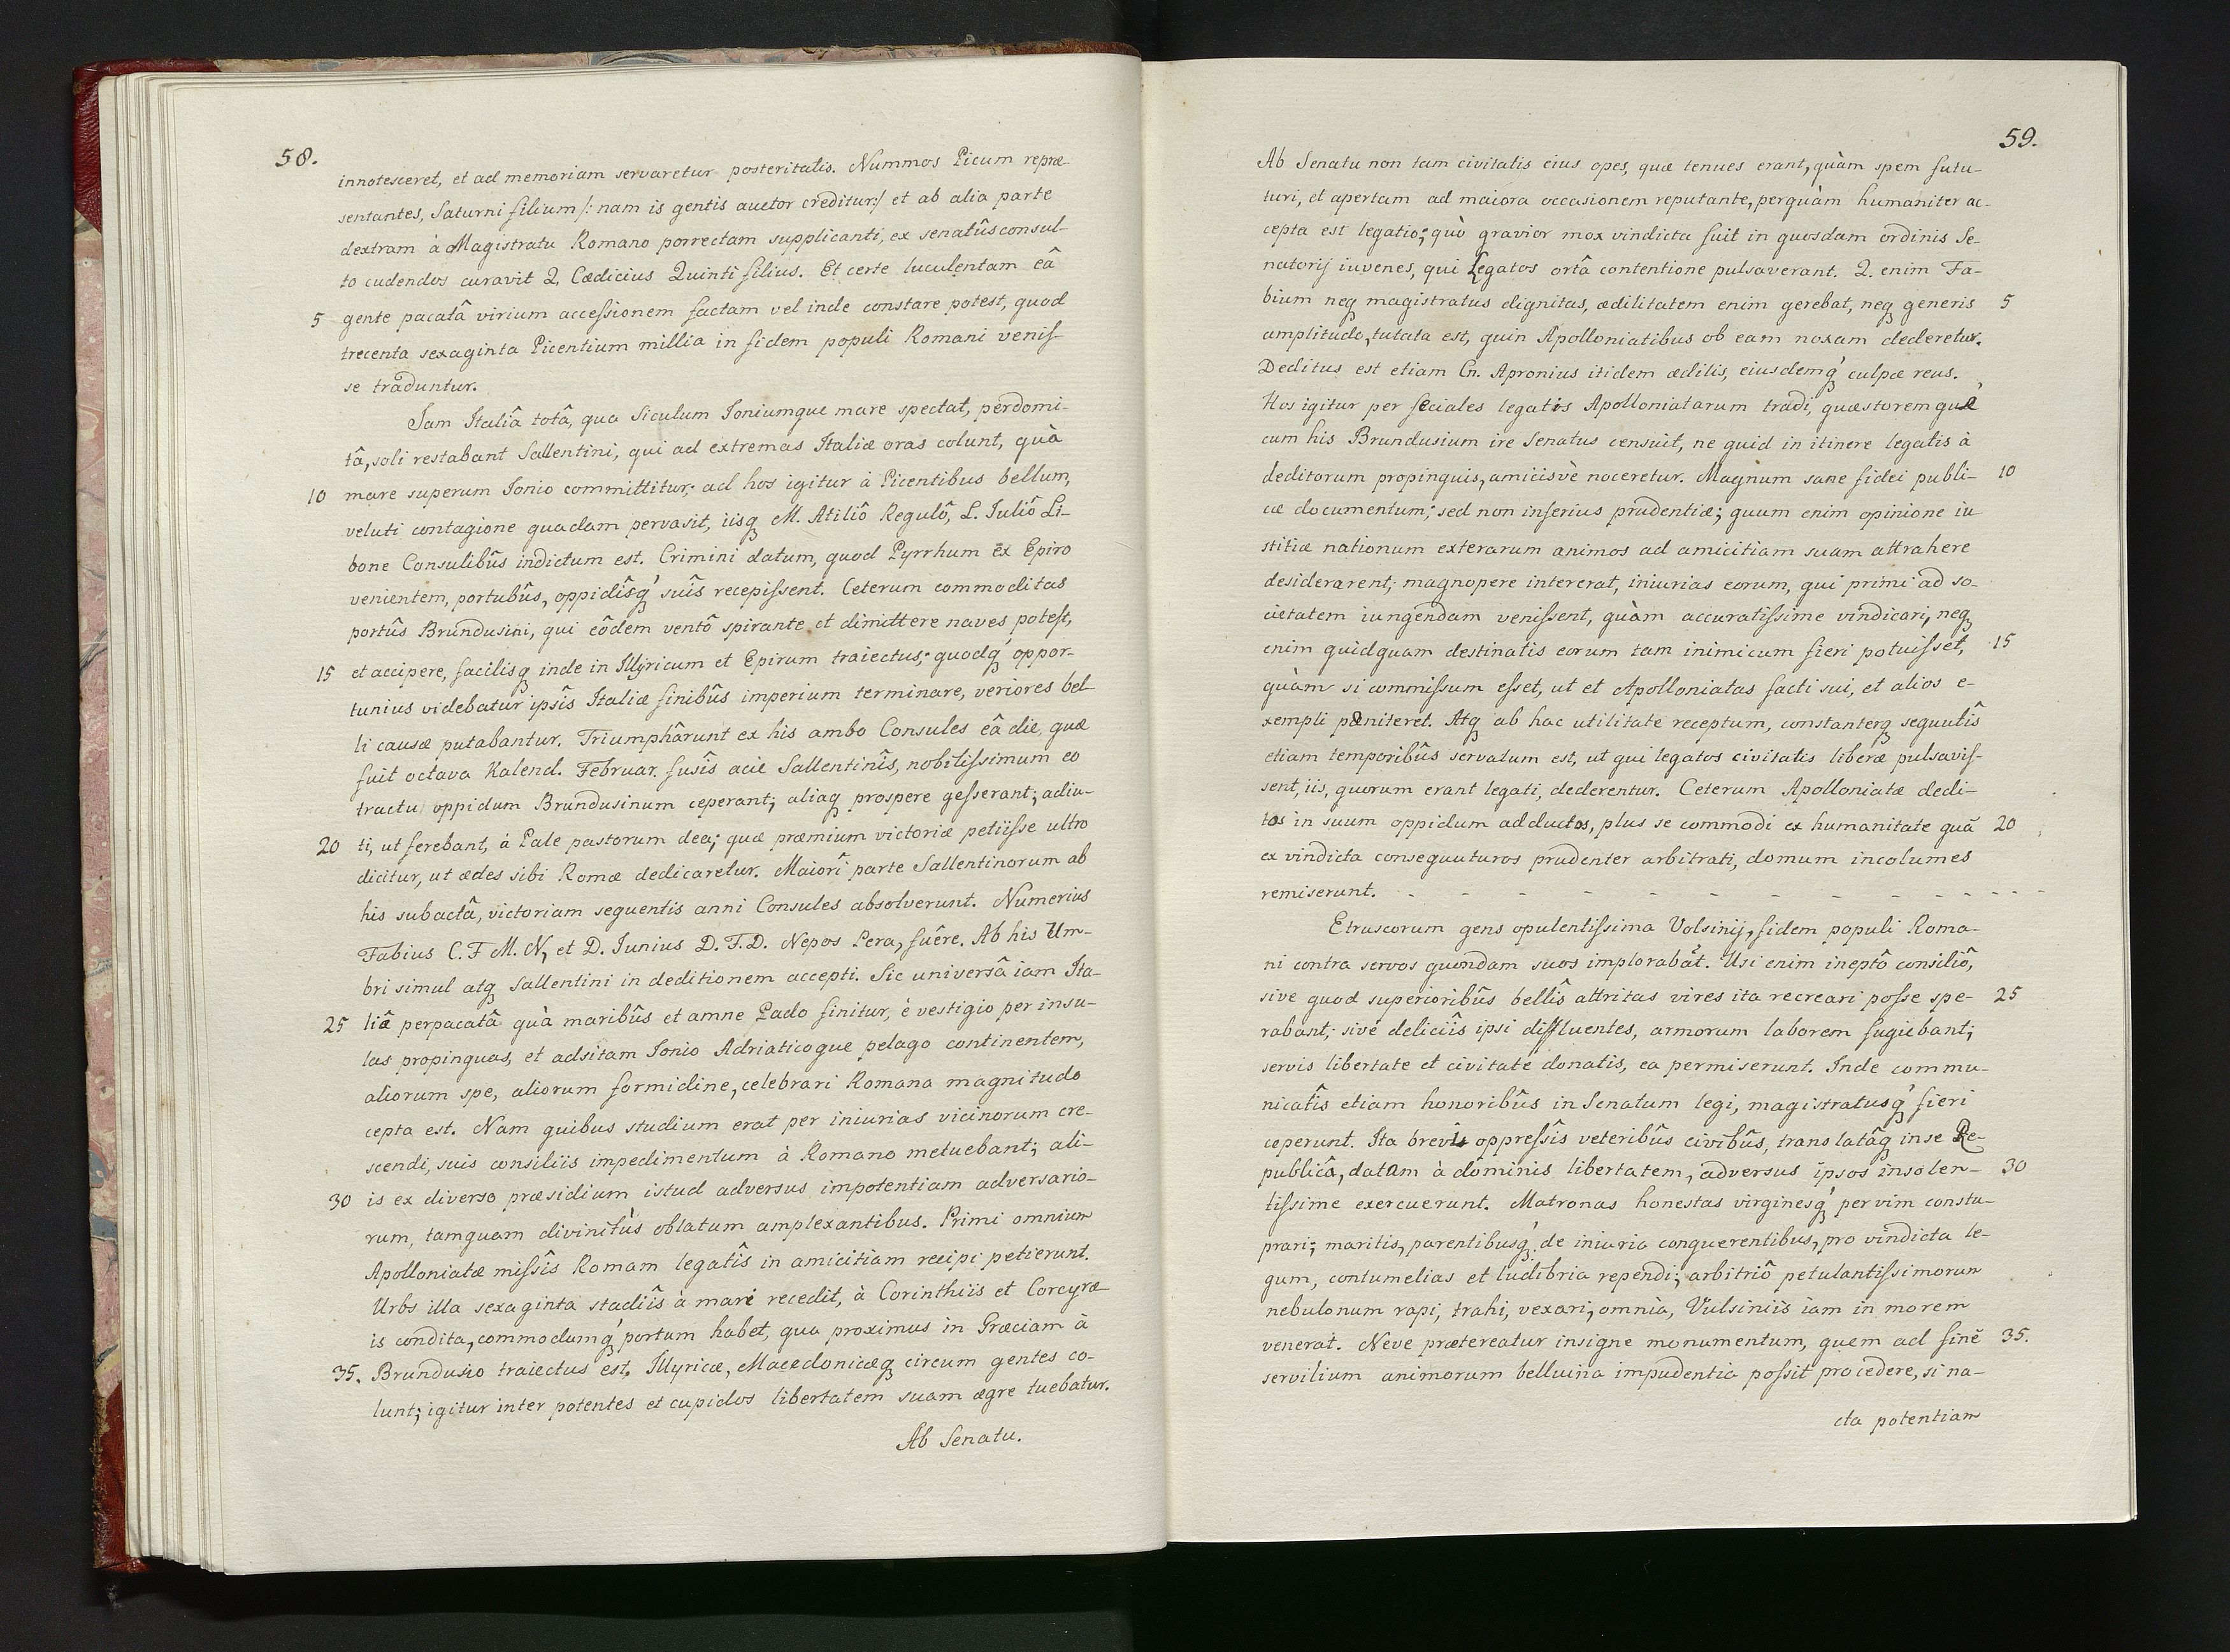 58.
innotesceret, et ad memoriam servaretur posteritatis. Nummos Picum repræ-
sentantes, Saturni filium /: nam is gentis auctor creditur:/ et ab alia parte
dextram à Magistratu Romano porrectam supplicanti, ex senatûsconsul-
to cudendos curavit Q. Cædicius Quinti filius. Et certe luculentam eâ
5 gente pacatâ virium accessionem factam vel inde constare potest, quod
trecenta sexaginta Picentium millia in fidem populi Romani venis-
se traduntur.
Iam Italiâ totâ, qua Siculum Ioniumque mare spectat, perdomi-
tâ, soli restabant Sallentini, qui ad extremas Italiæ oras colunt, quà
10 mare superum Ionio committitur; ad hos igitur à Picentibus bellum,
veluti contagione quadam pervasit, iisq M. Atiliô Regulô, L. Iuliô Li-
bone Consulibûs indictum est. Crimini datum, quod Pyrrhum ex Epiro
venientem, portubûs, oppidîsq́ suîs recepissent. Ceterum commoditas
portûs Brundusini, qui eôdem ventô spirante et dimittere naves potest,
15 et accipere, facilisq inde in Illÿricum et Epirum traiectus; quodq́ oppor-
tunius videbatur ipsîs Italiæ finibûs imperium terminare, veriores bel-
li causæ putabantur. Triumphârunt ex his ambo Consules eâ die, quæ
fuit octava Kalend. Februar. fusîs acie Sallentinîs, nobilissimum eo
tractu oppidum Brundusinum ceperant; aliaq prospere gesserant; adiu-
20 ti, ut ferebant, à Pale pastorum dea; quæ præmium victoriæ petiisse ultro
dicitur, ut ædes sibi Romæ dedicaretur. Maiori parte Sallentinorum ab
his subactâ, victoriam sequentis anni Consules absolverunt. Numerius
Fabius C. F M. N, et D. Iunius D. F. D. Nepos Pera, fuêre. Ab his Um-
bri simul atq Sallentini in deditionem accepti. Sic universâ iam Ita-
25 liâ perpacatâ quà maribûs et amne Pado finitur, è vestigio per insu-
las propinquas, et adsitam Ionio Adriaticoque pelago continentem,
aliorum spe, aliorum formidine, celebrari Romana magnitudo
cepta est. Nam quibus studium erat per iniurias vicinorum cre-
scendi, suis consiliis impedimentum à Romano metuebant; ali-
30 is ex diverso præsidium istud adversus impotentiam adversario-
rum, tamquam divinitùs oblatum amplexantibus. Primi omnium
Apolloniatæ missîs Romam legatîs in amicitiam recipi petierunt.
Urbs illa sexaginta stadiîs à mari recedit, à Corinthiis et Corcyræ-
is condita, commodumq́ portum habet, qua proximus in Græciam à
35. Brundusio traiectus est. Illyricæ, Macedonicæq circum gentes co-
lunt; igitur inter potentes et cupidos libertatem suam ægre tuebatur.
Ab Senatu.
59.
Ab Senatu non tam civitatis eius opes, quæ tenues erant, quàm spem futu-
turi, et apertam ad maiora occasionem reputante, perquàm humaniter ac-
cepta est legatio; quò gravior mox vindicta fuit in quosdam ordinis Se-
natorij iuvenes, qui Legatos ortâ contentione pulsaverant. Q. enim Fa-
bium neq magistratus dignitas, ædilitatem enim gerebat, neq generis 5
amplitudo, tutata est, quin Apolloniatibus ob eam noxam dederetur.
Deditus est etiam Cn. Apronius itidem ædilis, eiusdemq́ culpæ reus.
Hos igitur per feciales legatis Apolloniatarum tradi, quæstoremque
cum his Brundusium ire Senatus censuit, ne quid in itinere legatis à
deditorum propinquis, amicisvè noceretur. Magnum sane fidei publi- 10
cæ documentum; sed non inferius prudentiæ; quum enim opinione iu-
stitiæ nationum exterarum animos ad amicitiam suam attrahere
desiderarent; magnopere intererat, iniurias eorum, qui primi ad so-
cietatem iungendam venissent, quàm accuratissime vindicari, neq
enim quidquam destinatis eorum tam inimicum fieri potuisset, 15
quàm si commissum esset, ut et Apolloniatas facti sui, et alios e-
xempli pæniteret. Atq ab hac utilitate receptum, constanterq sequutîs
etiam temporibûs servatum est, ut qui legatos civitatis liberæ pulsavis-
sent, iis, quorum erant legati, dederentur. Ceterum Apolloniatæ dedi-
tos in suum oppidum adductos, plus se commodi ex humanitate quā 20
ex vindicta consequuturos prudenter arbitrati, domum incolumes
remiserunt. - - - - - - - - - - - -
Etruscorum gens opulentissima Volsinij, fidem populi Roma-
ni contra servos quondam suos implorabāt. Usi enim ineptô consiliô,
sive quod superioribûs bellîs attritas vires ita recreari posse spe- 25
rabant; sive deliciîs ipsi diffluentes, armorum laborem fugiebant;
servis libertate et civitate donatis, ea permiserunt. Inde commu-
nicatîs etiam honoribûs in Senatum legi, magistratusq́ fieri
ceperunt. Ita brevi oppressîs veteribûs civibûs, translatâq in se Re-
publicâ, datam à dominis libertatem, adversus ipsos insolen- 30
tissime exercuerunt. Matronas honestas virginesq́ per vim constu-
prari; maritis, parentibusq́ de iniuria conquerentibus, pro vindicta le-
gum, contumelias et ludibria rependi; arbitriô petulantissimorum
nebulonum rapi, trahi, vexari; omnia, Vulsiniis iam in morem
venerat. Neve prætereatur insigne monumentum, quem ad finē 35.
servilium animorum belluina impudentia possit procedere, si na-
cta potentiam